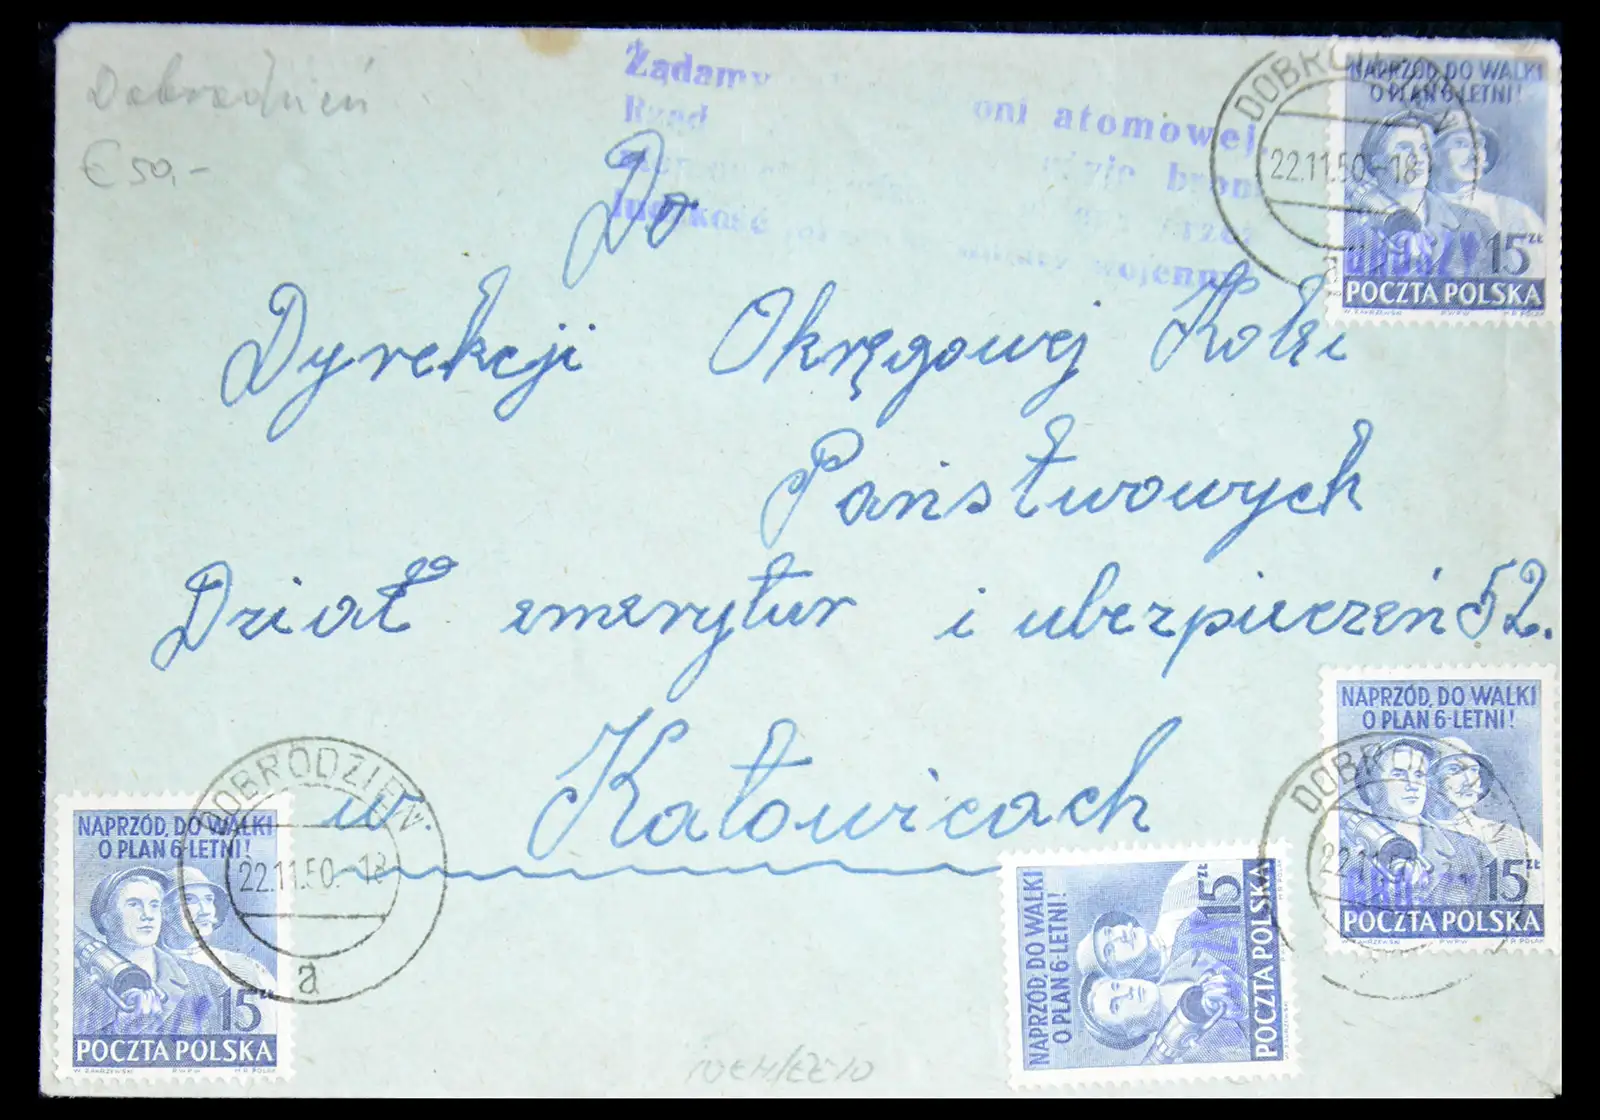 Dobrodzień
€ 50,-
Żądamy oni atomowej.
Rząd
broni
ludzkość wojenny
DOBRODZIEŃ
22.11.50.-18
a
NAPRZÓD, DO WALKI
O PLAN 6-LETNI!
GROSZY 15 ZŁ
POCZTA POLSKA
W. ZAKRZEWSKI P W P W M. R. POLAK
Do
Dyrekcji Okręgowej Kolei
Państwowych
Dział emerytur i ubezpieczeń 52.
w. Katowicach
NAPRZÓD, DO WALKI
O PLAN 6-LETNI!
15 ZŁ
POCZTA POLSKA
W. ZAKRZEWSKI P W P W M. R. POLAK
DOBRODZIEŃ
22.11.50.-18
NAPRZÓD, DO WALKI
O PLAN 6-LETNI!
15 ZŁ
POCZTA POLSKA
W. ZAKRZEWSKI P W P W M. R. POLAK
DOBRODZIEŃ
22.11.50.-18
a
NAPRZÓD, DO WALKI
O PLAN 6-LETNI!
15 ZŁ
POCZTA POLSKA
W. ZAKRZEWSKI P W P W M. R. POLAK